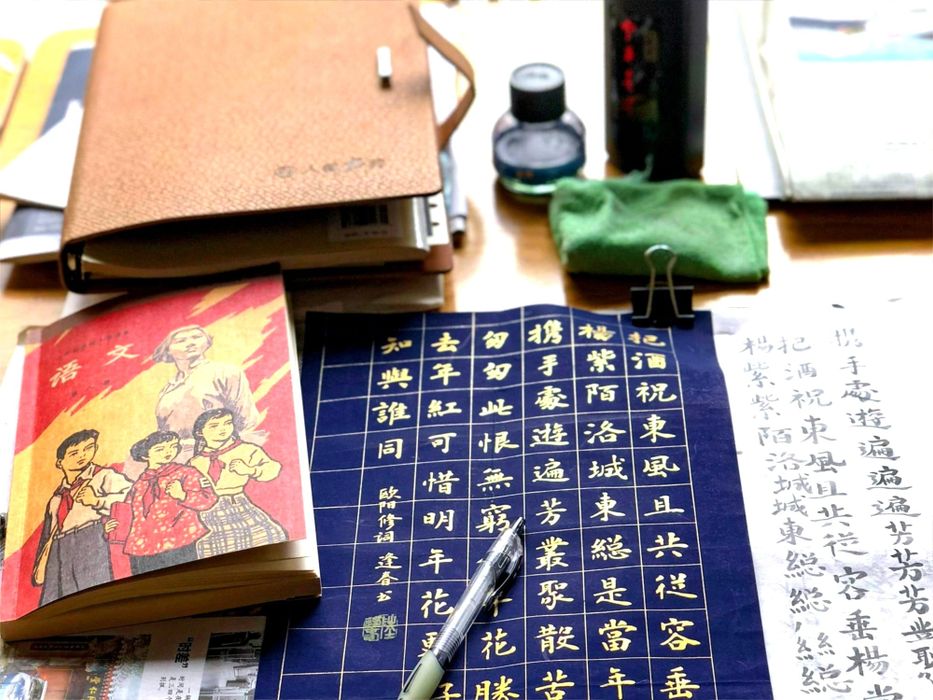 语文
把酒祝東風且共従容垂
楊紫陌洛城東緫是當年
携手處遊遍芳叢聚散苦
匆匆此恨無窮花勝
去年紅可惜明年花更
知與誰同
欧陽修詞 逢春书
携手處遊遍遍遍芳芳芳
把酒祝東風且共従容垂楊
楊紫紫陌洛城城東緫緫